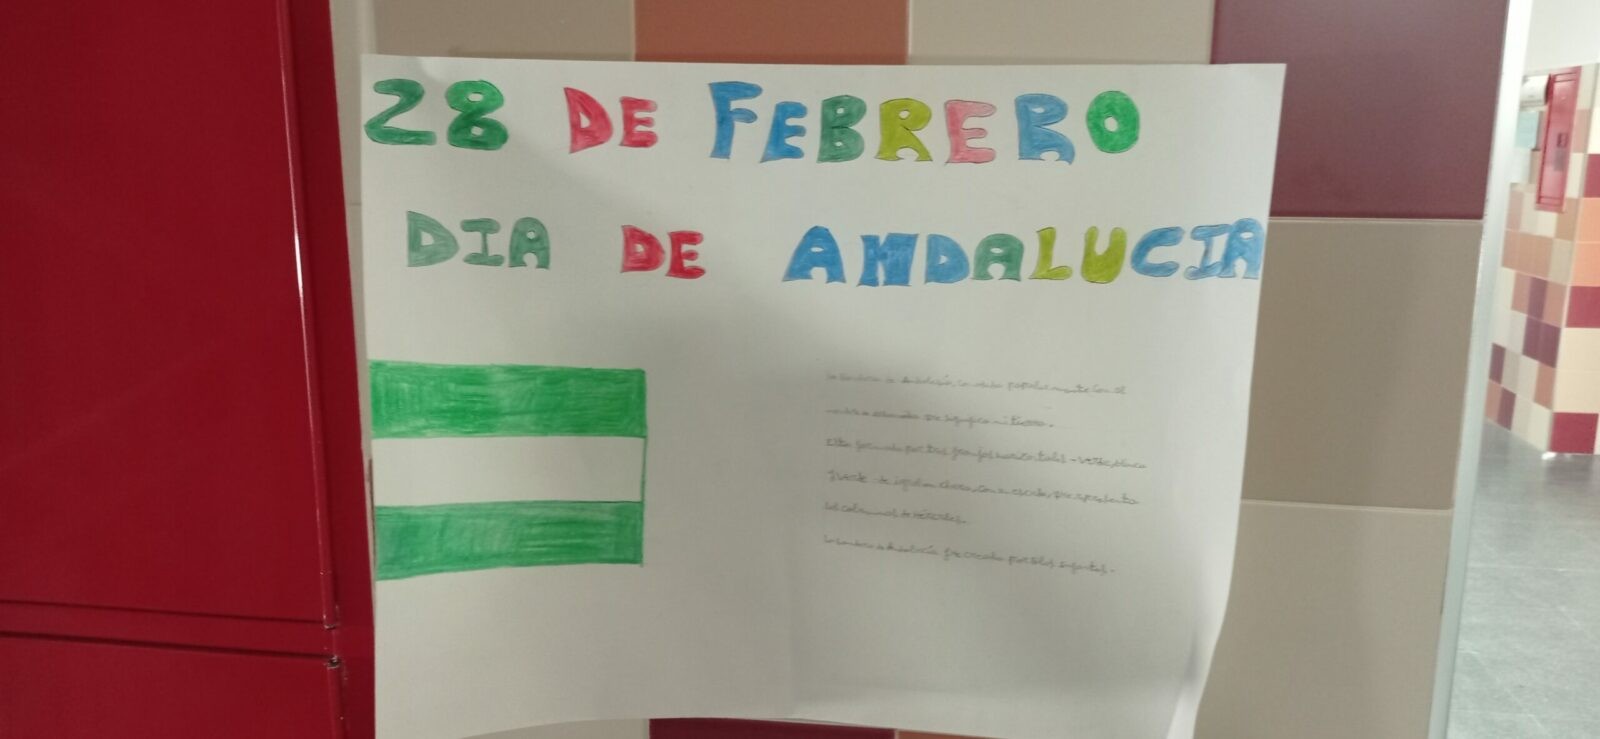 28 DE FEBRERO
DIA DE ANDALUCIA
La bandera de Andalucía, conocida popularmente con el
que significa mi tierra.
Esta formada por tres franjas horizontales - verde, blanca
y verde - de igual anchura, con su escudo, que representa
las columnas de Hércules.
La bandera de Andalucía fue creada por blas infantas.